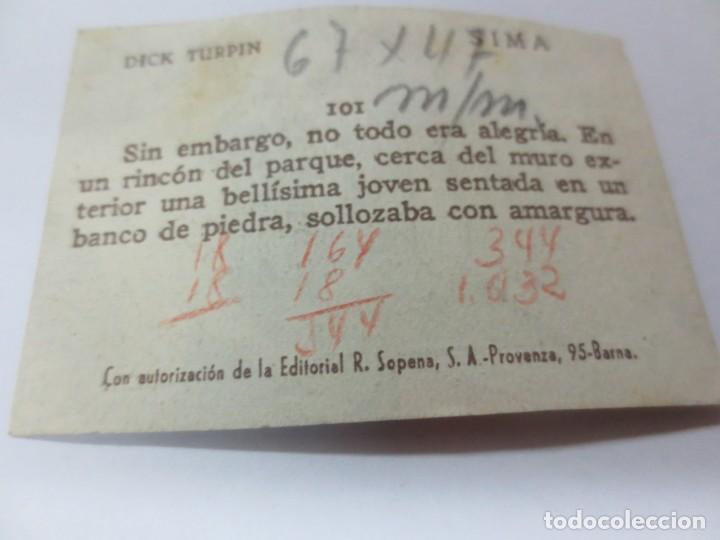 DICK TURPIN 67 x 47 SIMA
101 m/m.
Sin embargo, no todo era alegría. En
un rincón del parque, cerca del muro ex-
terior una bellísima joven sentada en un
banco de piedra, sollozaba con amargura.
18 164 344
18 18 1.032
344
Con autorización de la Editorial R. Sopena, S. A.-Provenza, 95-Barna.
todocoleccion.net